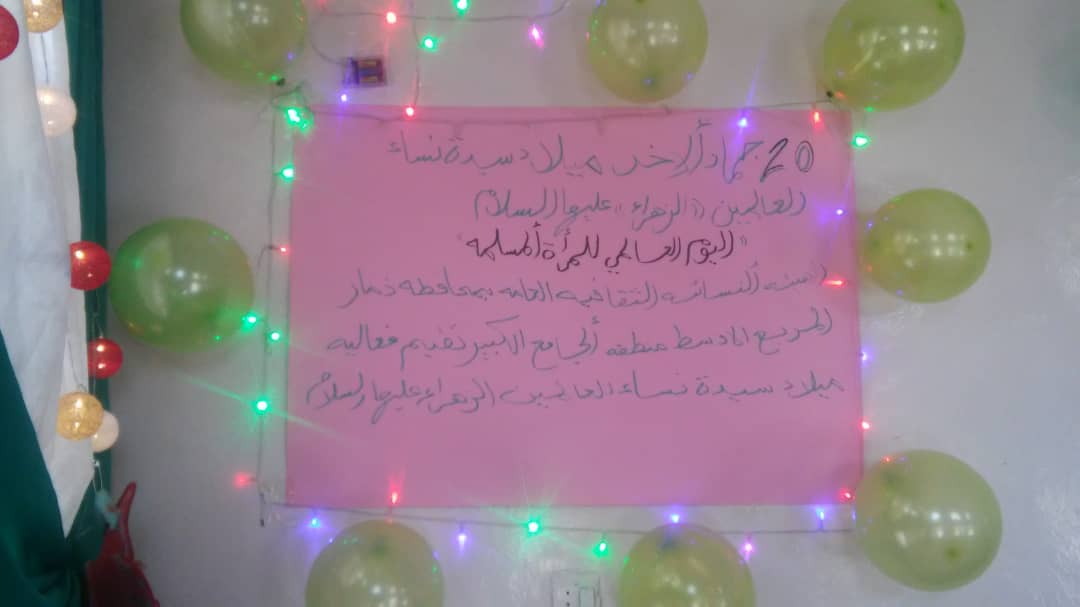 20 جماد ألاخر ميلاد سيدة نساء
العالمين "الزهراء" عليها السلام
"اليوم العالمي للمرأة ألمسلمه"
ألنسائيه الثقافيه العامه بمحافظه ذمار
المربع الاوسط منطقه ألجامع الكبير تقيم فعاليه
ميلاد سيدة نساء العالمين الزهراء عليها السلام